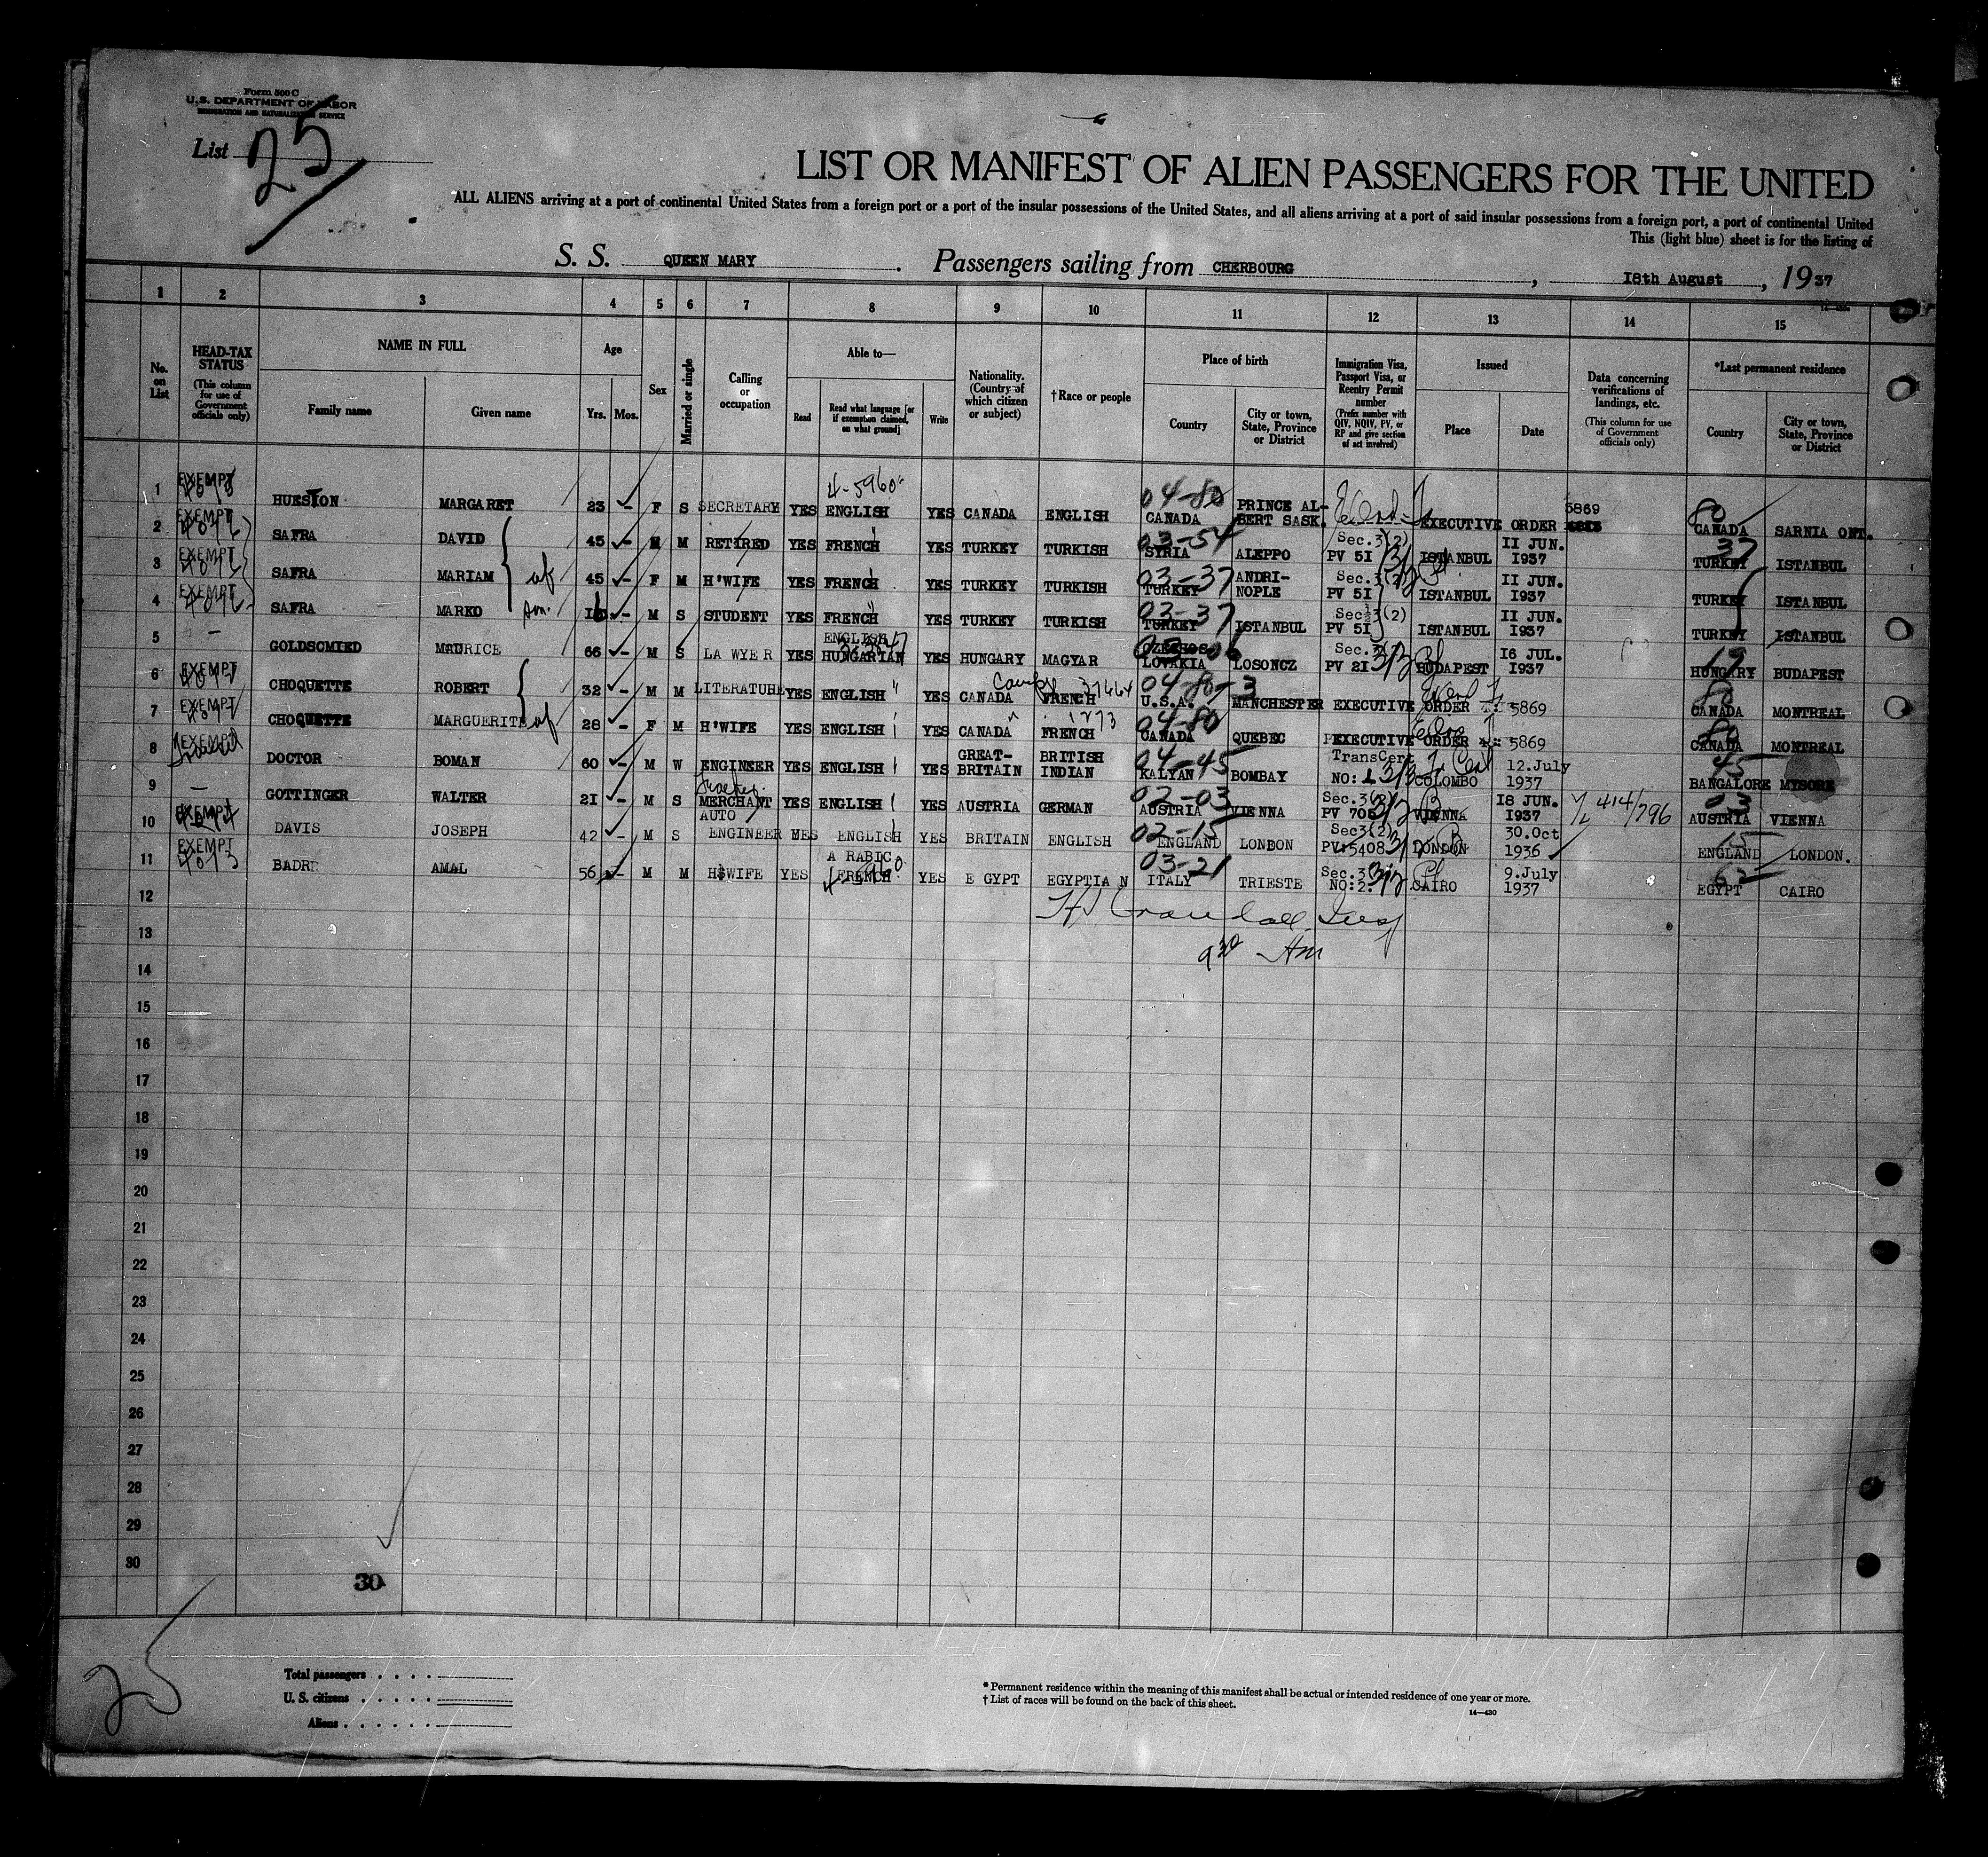 Form 500 C
U.S. DEPARTMENT OF LABOR
IMMIGRATION AND NATURALIZATION SERVICE
List 25
LIST OR MANIFEST OF ALIEN PASSENGERS FOR THE UNITED
ALL ALIENS arriving at a port of continental United States from a foreign port or a port of the insular possessions of the United States, and all aliens arriving at a port of said insular possessions from a foreign port, a port of continental United
This (light blue) sheet is for the listing of
S. S. QUEEN MARY. Passengers sailing from CHERBOURG, 18th August, 1937
1 2 3 4 5 6 7 8 9 10 11 12 13 14 15
No. on List
HEAD-TAX STATUS (This column for use of Government officials only)
NAME IN FULL Family name Given name
Age Yrs. Mos.
Sex
Married or single
Calling or occupation
Able to— Read Read what language [or if exemption claimed, on what ground] Write
Nationality. (Country of which citizen or subject)
†Race or people
Place of birth Country City or town, State, Province or District
Immigration Visa, Passport Visa, or Reentry Permit number (Prefix number with QIV, NQIV, PV, or RP and give section of act involved)
Issued Place Date
Data concerning verifications of landings, etc. (This column for use of Government officials only)
*Last permanent residence Country City or town, State, Province or District
1 EXEMPT HUESTON MARGARET 23 F S SECRETARY YES ENGLISH YES CANADA ENGLISH 04-80 CANADA PRINCE ALBERT SASK. EXECUTIVE ORDER 5869 80 CANADA SARNIA ONT.
2 EXEMPT SAFRA DAVID 45 M M RETIRED YES FRENCH YES TURKEY TURKISH 03-54 SYRIA ALEPPO Sec.3(2) PV 5I ISTANBUL II JUN. I937 37 TURKEY ISTANBUL
3 EXEMPT SAFRA MARIAM 45 F M H'WIFE YES FRENCH YES TURKEY TURKISH 03-37 TURKEY ANDRI-NOPLE Sec.3(2) PV 5I ISTANBUL II JUN. I937 TURKEY ISTANBUL
4 EXEMPT SAFRA MARKO son. 16 M S STUDENT YES FRENCH YES TURKEY TURKISH 03-37 TURKEY ISTANBUL Sec 3(2) PV 5I ISTANBUL II JUN. I937 TURKEY ISTANBUL
5 GOLDSCMIED MAURICE 66 M S LAWYER YES ENGLISH HUNGARIAN YES HUNGARY MAGYAR CZECHOSLOVAKIA LOSONCZ PV 2I BUDAPEST I6 JUL. I937 19 HUNGARY BUDAPEST
6 EXEMPT CHOQUETTE ROBERT 32 M M LITERATURE YES ENGLISH YES CANADA FRENCH 04-80-3 U.S.A. MANCHESTER EXECUTIVE ORDER 5869 80 CANADA MONTREAL
7 EXEMPT CHOQUETTE MARGUERITE 28 F M H'WIFE YES ENGLISH YES CANADA FRENCH 04-80 CANADA QUEBEC EXECUTIVE ORDER 5869 80 CANADA MONTREAL
8 EXEMPT DOCTOR BOMAN 60 M W ENGINEER YES ENGLISH YES GREAT-BRITAIN BRITISH INDIAN 04-45 KALYAN BOMBAY TransCert NO: 1 COLOMBO 12.July 1937 45 BANGALORE MYSORE
9 GOTTINGER WALTER 21 M S MERCHANT YES ENGLISH YES AUSTRIA GERMAN 02-03 AUSTRIA VIENNA Sec.3(2) PV 705 VIENNA I8 JUN. I937 414/796 03 AUSTRIA VIENNA
10 EXEMPT DAVIS JOSEPH 42 M S AUTO ENGINEER YES ENGLISH YES BRITAIN ENGLISH 02-15 ENGLAND LONDON Sec3(2) PV:5408 LONDON 30.Oct 1936 15 ENGLAND LONDON.
11 EXEMPT BADRE AMAL 56 M M H'WIFE YES ARABIC FRENCH YES EGYPT EGYPTIAN 03-21 ITALY TRIESTE Sec.3 NO:2 CAIRO 9.July 1937 EGYPT CAIRO
12
13
9 30 Am
14
15
16
17
18
19
20
21
22
23
24
25
26
27
28
29
30
30
25
Total passengers
U. S. citizens
Aliens
* Permanent residence within the meaning of this manifest shall be actual or intended residence of one year or more.
† List of races will be found on the back of this sheet.
14—430